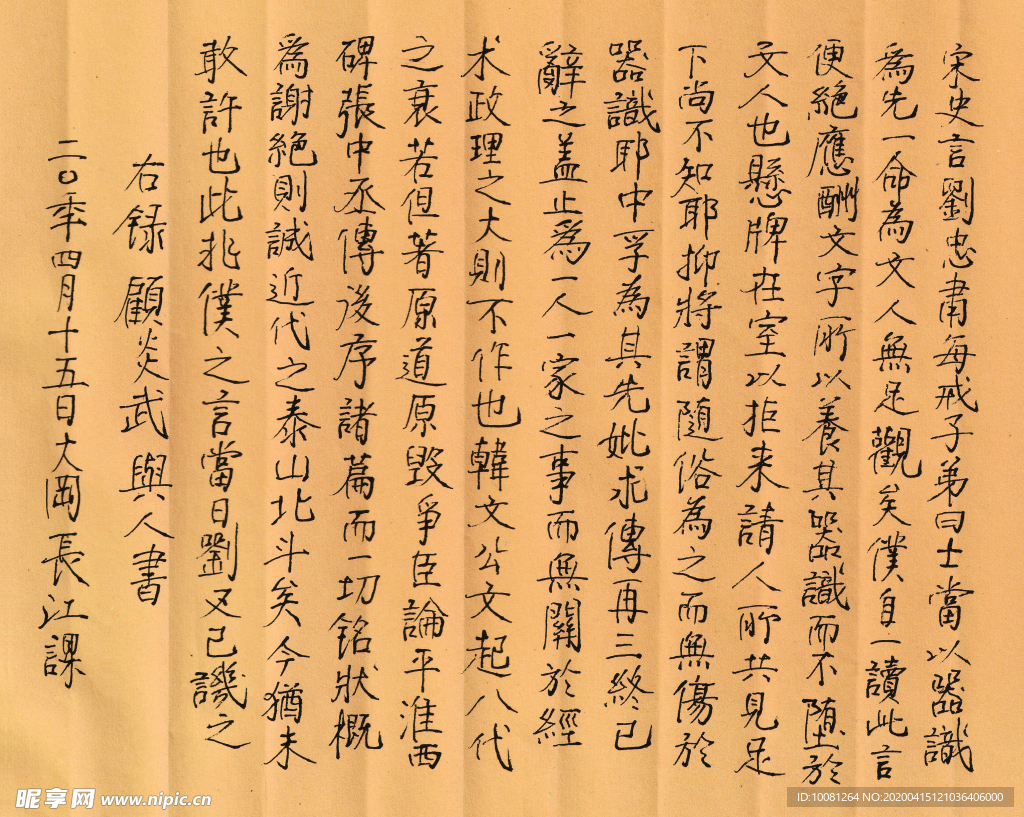 宋史言劉忠肅每戒子弟曰士當以器識
為先一命為文人無足觀矣僕自一讀此言
便絕應酬文字所以養其器識而不墮於
文人也懸牌在室以拒来請人所共見足
下尚不知耶抑將謂隨俗為之而無傷於
器識耶中孚為其先妣求傳再三終已
辭之蓋止為一人一家之事而無關於經
术政理之大則不作也韓文公文起八代
之衰若但著原道原毀爭臣論平淮西
碑張中丞傳後序諸篇而一切銘狀概
為謝絕則誠近代之泰山北斗矣今猶未
敢許也此非僕之言當日劉叉已譏之
右録顧炎武與人書
二〇年四月十五日大岡長江課
昵享网 www.nipic.cn
ID:10081264 NO:20200415121036406000